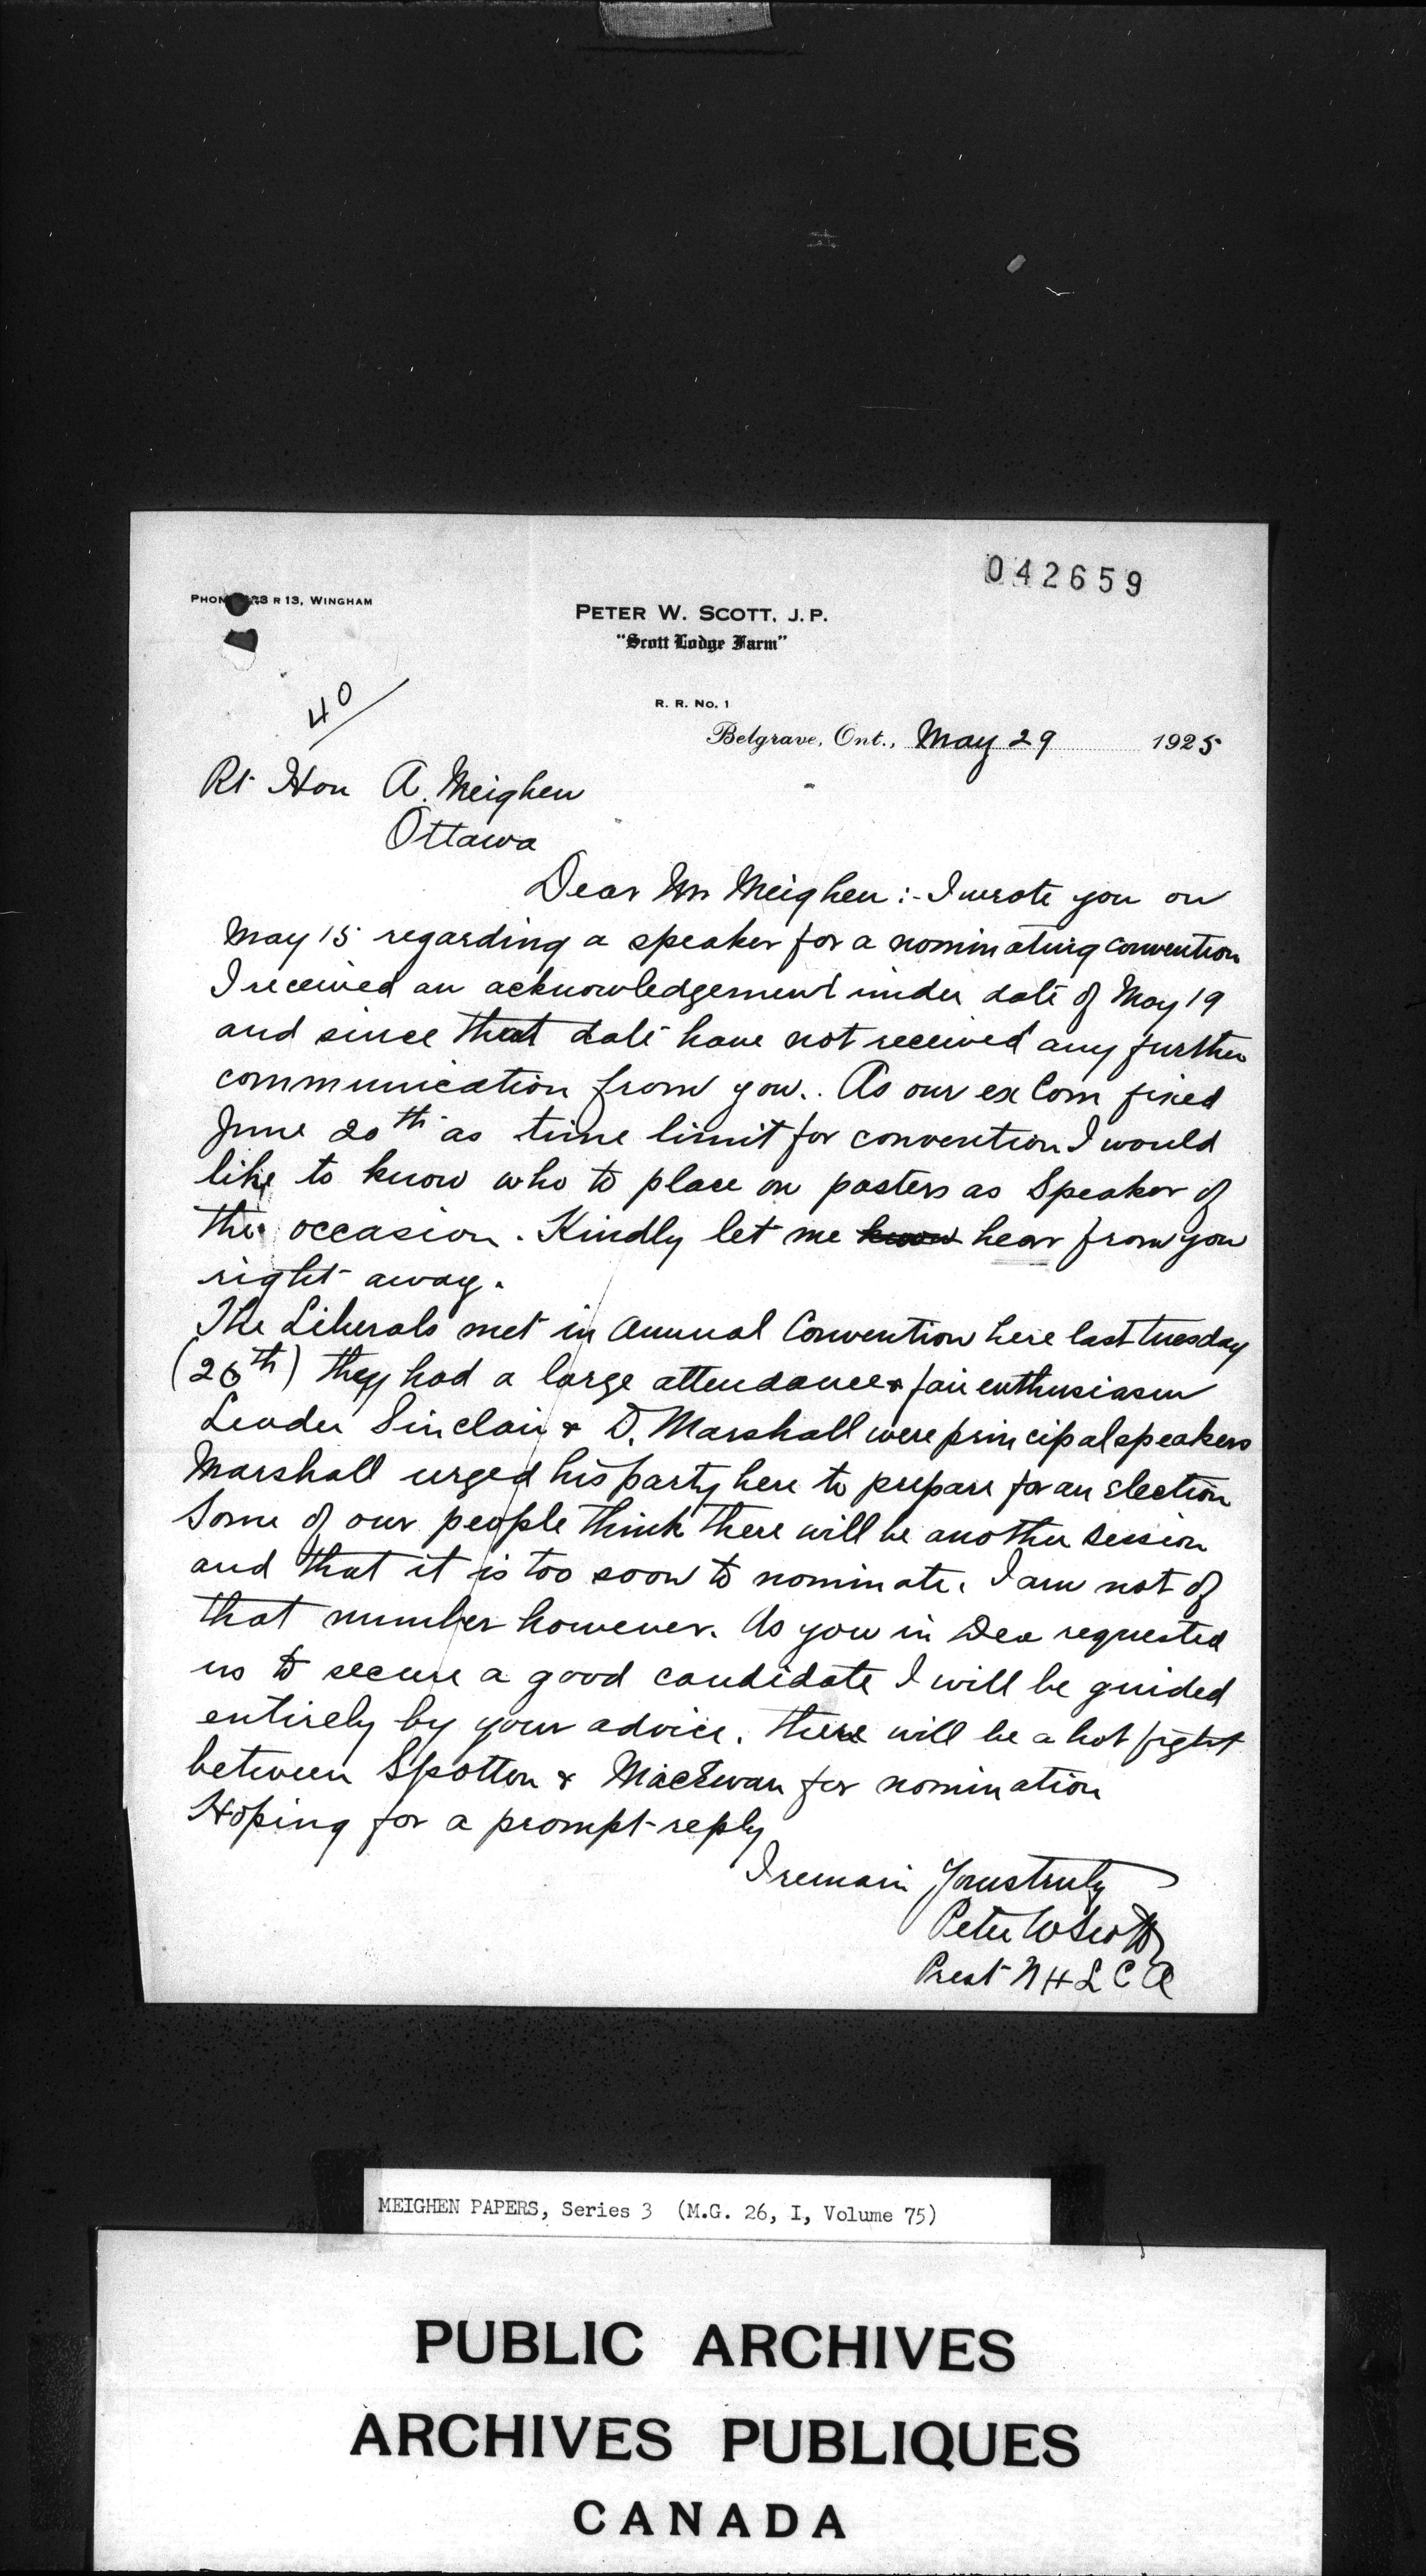 042659
PHONE 623 R 13, WINGHAM
PETER W. SCOTT, J. P.
"Scott Lodge Farm"
R. R. No. 1
40
Belgrave, Ont., May 29 1925
Rt Hon A. Meighen
Ottawa
Dear Mr Meighen :- I wrote you on
May 15 regarding a speaker for a nominating convention
I received an acknowledgement under date of May 19
and since that date have not received any further
communication from you.. As our ex Com fixed
June 20th as time limit for convention I would
like to know who to place on posters as Speaker of
the occasion. Kindly let me know hear from you
right away.
The Liberals met in Annual Convention here last tuesday
(26th) they had a large attendance & fair enthusiasm
Leader Sinclair & D. Marshall were principal speakers
Marshall urged his party here to prepare for an election
Some of our people think there will be another session
and that it is too soon to nominate. I am not of
that number however. As you in Dec requested
us to secure a good candidate I will be guided
entirely by your advice. there will be a hot fight
between Spotton & MacEwan for nomination
Hoping for a prompt reply
I remain Yours truly
Peter W Scott
Prest N H L C A
MEIGHEN PAPERS, Series 3 (M.G. 26, I, Volume 75)
PUBLIC ARCHIVES
ARCHIVES PUBLIQUES
CANADA